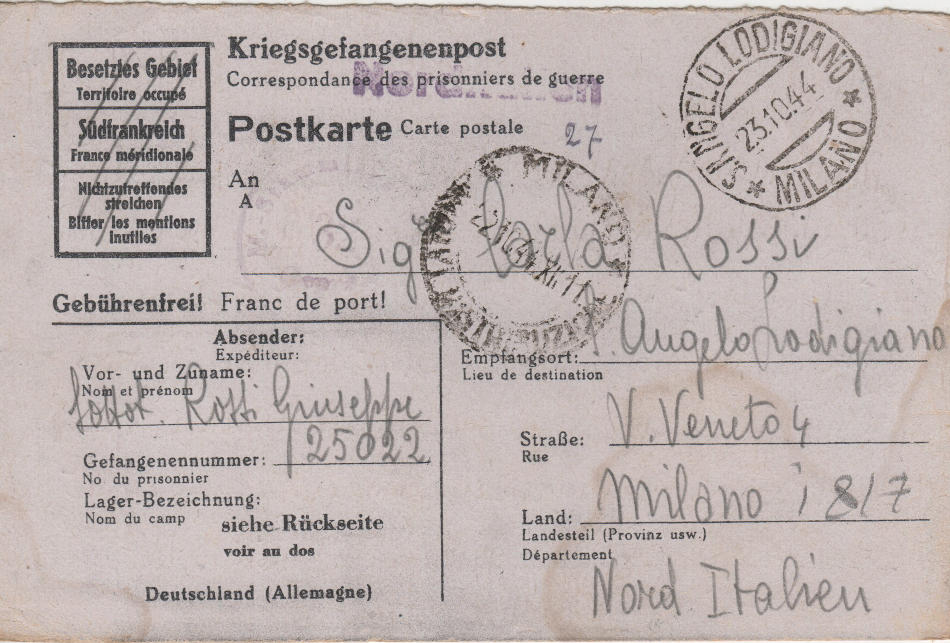 Besetztes Gebiet
Territoire occupé
Südfrankreich
France méridionale
Nichtzutreffendes
streichen
Biffer les mentions
inutiles
Kriegsgefangenenpost
Correspondance des prisonniers de guerre
Norditalien
Postkarte Carte postale
27
S. ANGELO LODIGIANO
23.10.44
MILANO
An
A
MILANO
22.10.44.XII.11
Sig Carla Rossi
Gebührenfrei! Franc de port!
Absender:
Expéditeur:
Vor- und Zuname:
Nom et prénom
Sottot. Rossi Giuseppe
25022
Gefangenennummer:
No du prisonnier
Lager-Bezeichnung:
Nom du camp
siehe Rückseite
voir au dos
Deutschland (Allemagne)
S. Angelo Lodigiano
Empfangsort:
Lieu de destination
V. Veneto 4
Straße:
Rue
Milano 8/7
Land:
Landesteil (Provinz usw.)
Département
Nord Italien